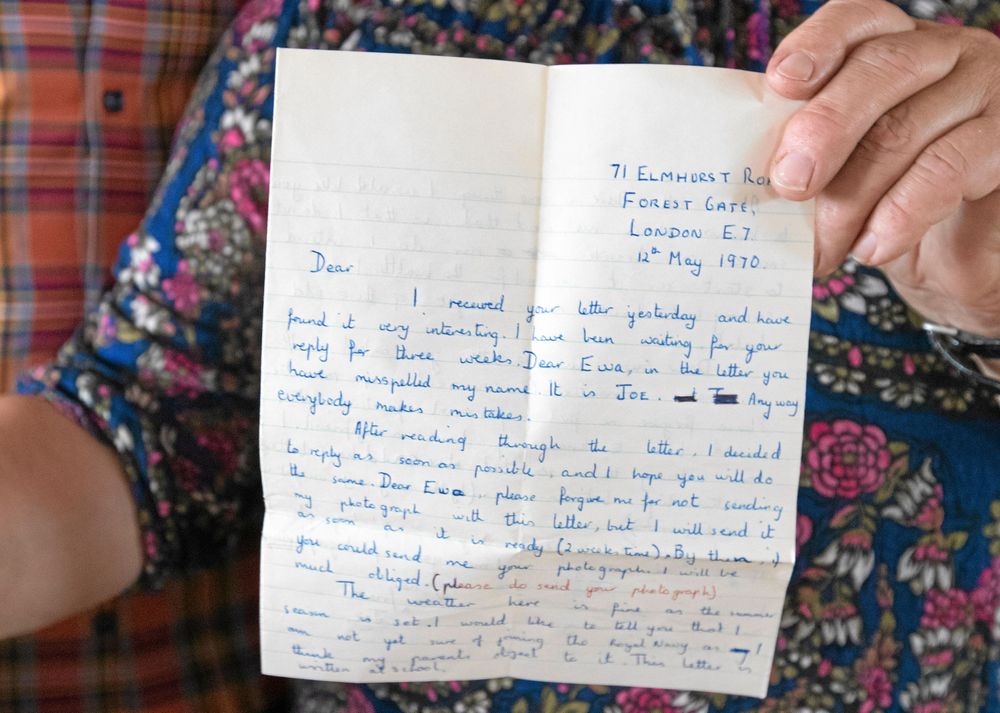 71 ELMHURST ROA
FOREST GATE,
LONDON E.7.
12th May 1970.
Dear
I received your letter yesterday and have
found it very interesting. I have been waiting for your
reply for three weeks. Dear Ewa, in the letter you
have misspelled my name. It is JOE. Any way
everybody makes mistakes.
After reading through the letter, I decided
to reply as soon as possible, and I hope you will do
the same. Dear Ewa, please forgive me for not sending
my photograph with this letter, but I will send it
as soon as it is ready (2 weeks time). By then, if
you could send me your photograph. I will be
much obliged. (please do send your photograph)
The weather here is fine as the summer
season is set. I would like to tell you that I
am not yet sure of joining the Royal Navy as I
think my parents object to it. This letter is
written at school.